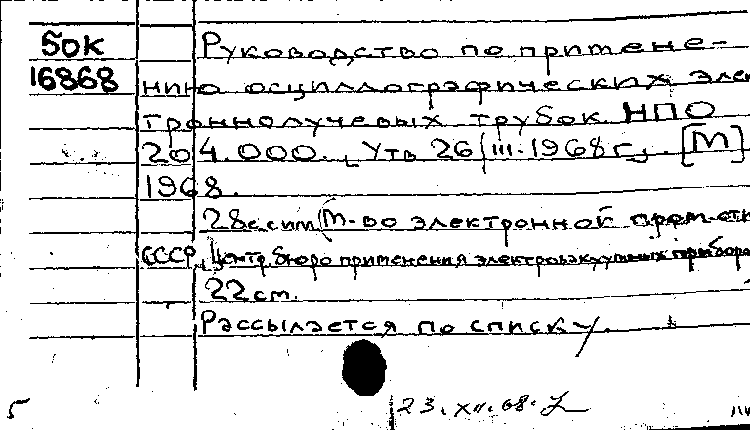 бок Руководство по примене-
16868 нию осциллографических элек
троннолучевых трубок НПО
204.000. Утв 26/III-1968г. [М]
1968.
28с. сил (М-во электронной пром-сти
СССР. Центр. бюро применения электровакуумных приборо
22 см.
Рассылается по списку.
5 23.XII.68.